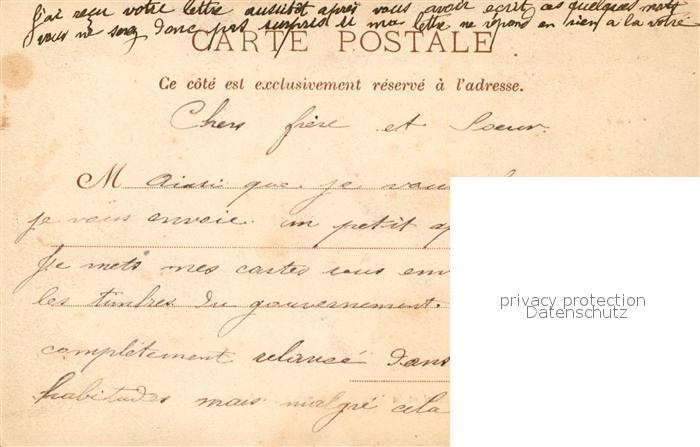 J'ai reçu votre lettre aussitôt après vous avoir ecrit ces quelques mots
vous ne serez donc pas surpris si ma lettre ne repond en rien a la votre
CARTE POSTALE
Ce côté est exclusivement réservé à l'adresse.
Chers frère et Soeur.
M Ainsi que je vous
je vous envoie un petit
Je mets mes cartes sous
les timbres du gouvernement.
complètement relancé dans
habitudes mais malgré cela
privacy protection
Datenschutz